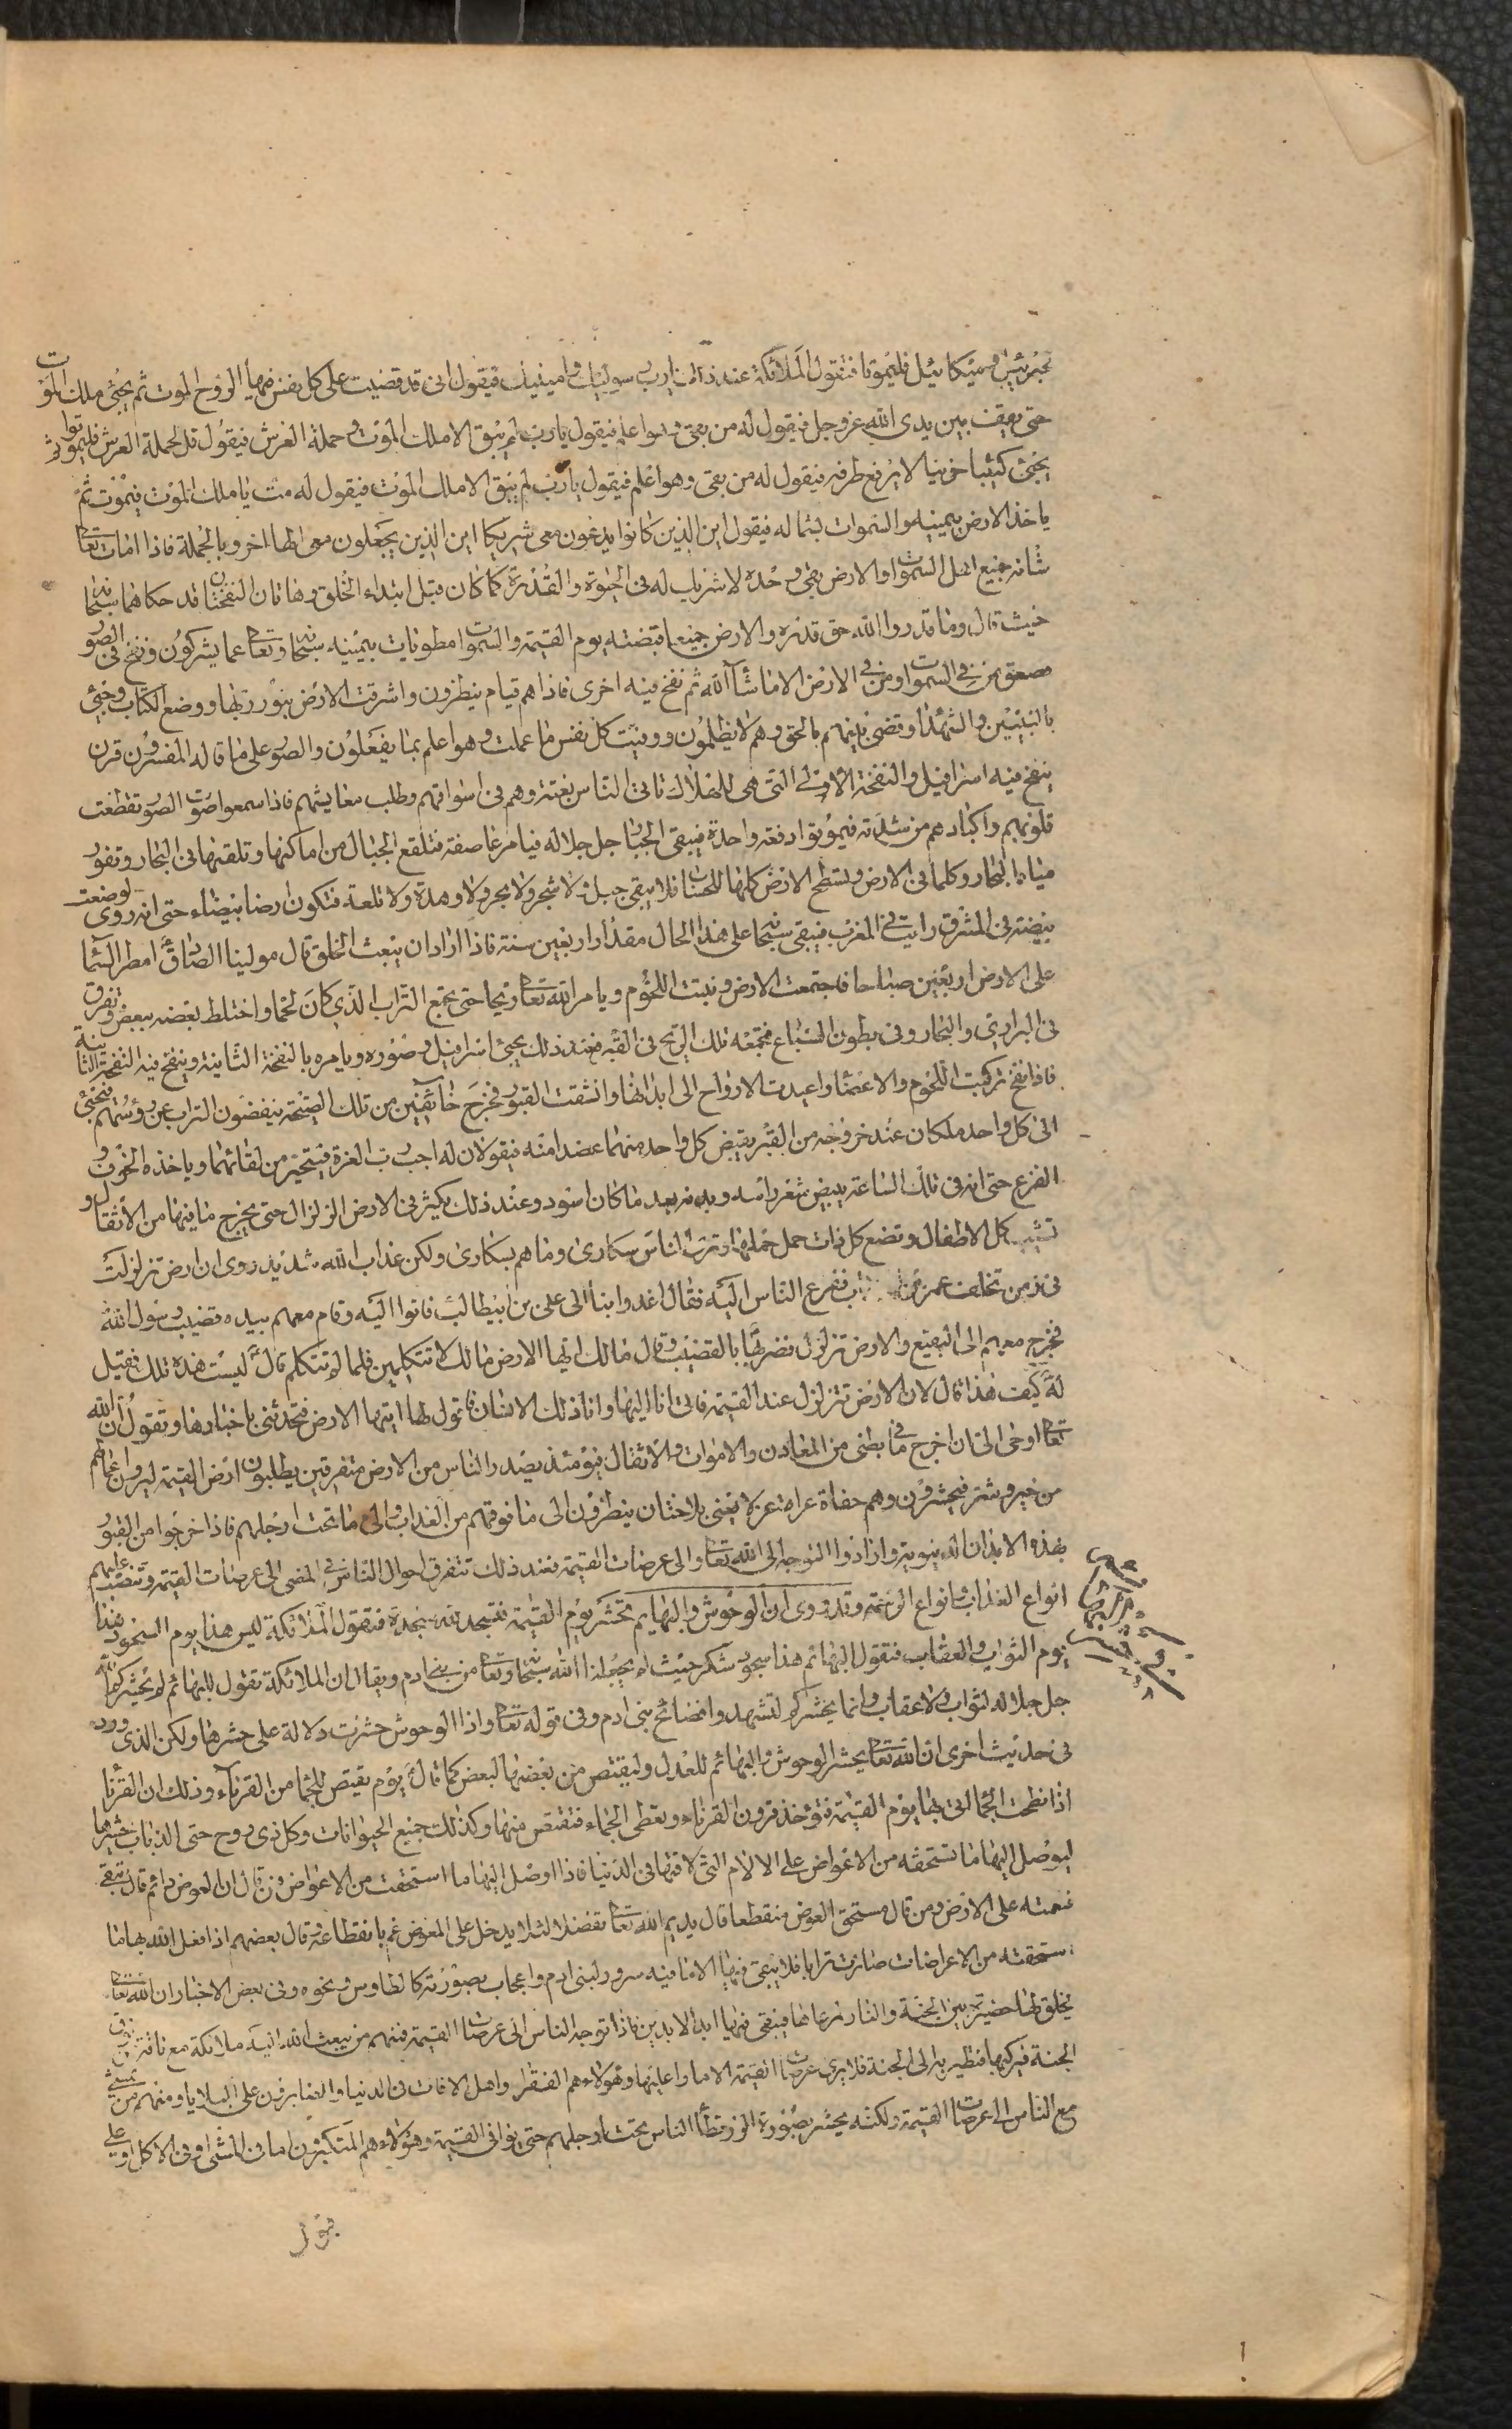 لجبرئيل وميكائيل فليموتا فتقول الملائكة عند ذلك يارب رسوليك وامينيك فيقول انى قد قضيت على كل نفس فيها الروح الموت ثم يجئ ملك الموت
حتى يقف بين يدى الله عز وجل فيقول له من بقى وهو اعلم فيقول يارب لم يبق الا ملك الموت وحملة العرش فيقول قل لحملة العرش فليموتوا ثم
يجئ كئيبا حزينا لا يرفع طرفه فيقول له من بقى وهو اعلم فيقول يارب لم يبق الا ملك الموت فيقول له مت يا ملك الموت فيموت ثم
ياخذ الارض بيمينه والسموات بشماله فيقول اين الذين كانوا يدعون معى شريكا اين الذين يجعلون معى الها اخر وبالجملة فاذا امات تعالى
شانه جميع اهل السموات والارض بقى وحده لا شريك له فى الحيوة والقدرة كما كان قبل ابتداء الخلق وهاتان النفختان قد حكاهما سبحانه
حيث قال وما قدروا الله حق قدره والارض جميعا قبضته يوم القيمة والسموات مطويات بيمينه سبحانه وتعالى عما يشركون ونفخ فى الصور
فصعق من فى السموات ومن فى الارض الا ما شآء الله ثم نفخ فيه اخرى فاذا هم قيام ينظرون واشرقت الارض بنور ربها ووضع الكتاب وجئ
بالنبيين والشهدا وقضى بينهم بالحق وهم لا يظلمون ووفيت كل نفس ما عملت وهو اعلم بما يفعلون والصور على ما قاله المفسرون قرن
ينفخ فيه اسرافيل والنفخة الاولى التى هى للهلاك تاتى الناس بغتة وهم فى اسواقهم وطلب معايشهم فاذا سمعوا صوت الصور تقطعت
قلوبهم واكبادهم من شدته فيموتوا دفعة واحدة فيبقى الجبار جل جلاله فيامر عاصفة فتقلع الجبال من اماكنها وتلقيها فى البحار وتفور
مياه البحار وكلما فى الارض وتسطح الارض كلها للحساب فلا يبقى جبل ولا شجر ولا بحر ولا وهدة ولا تلعة فتكون ارضا بيضاء حتى انه روى لو وضعت
بيضة فى المشرق رايت فى المغرب فيبقى سبحانه على هذا الحال مقدار اربعين سنة فاذا اراد ان يبعث الخلق قال مولينا الصادق امطر السماء
على الارض اربعين صباحا فاجتمعت الارض ونبتت اللحوم ويامر الله تعالى ريحا حتى تجمع التراب الذى كان لحما واختلط بعضه ببعض وتفرق
فى البرارى والبحار وفى بطون السباع فتجمعه تلك الريح فى القبر فعند ذلك يجئ اسرافيل وصوره ويامره بالنفخة الثانية وينفخ فيه النفخة الثانية
فاذا نفخ تركبت اللحوم والاعضاء واعيدت الارواح الى ابدانها وانشقت القبور فخرج خائفين من تلك الصيحة ينفضون التراب عن رؤسهم فيجئ
الى كل واحد ملكان عند خروجه من القبر يقبض كل واحد منهما عضدا منه فيقولان له اجب رب العزة فيتحير من لقائهما وياخذه الخوف و
الفزع حتى انه فى تلك الساعة يبيض شعر راسه وبدنه بعد ما كان اسود وعند ذلك يكثر فى الارض الزلزال حتى يخرج ما فيها من الاثقال و
تشيب كل الاطفال وتضع كل ذات حمل حملها وترى الناس سكارى وما هم بسكارى ولكن عذاب الله شديد روى ان ارض تزلزلت
فى زمن تخلف عمر ففزع الناس اليه فقال اغدوا بنا الى على بن ابيطالب فاتوا اليه وقام معهم بيده قضيب رسول الله
فخرج معهم الى البقيع والارض تزلزل فضربها بالقضيب وقال مالك ايها الارض مالك لا تتكلمين فلما لم تتكلم قال ليست هذه تلك فقيل
له كيف هذا قال لان الارض تتزلزل عند القيمة فاتى انا اليها وانا ذلك الانسان فاقول لها ايتها الارض فتحدثنى باخبارها وتقول ان الله
تعالى اوحى الى ان اخرج ما فى بطنى من المعادن والاموات والاثقال فيومئذ يصدر الناس من الارض متفرقين يطلبون ارض القيمة ليروا اعمالهم
من خير وشر فيحشرون وهم حفاة عراة عزلا يعنى بلا ختان ينظرون الى ما فوقهم من العذاب والى ما تحت ارجلهم فاذا خرجوا من القبور
بهذه الابدان الدنيوية وارادوا التوجه الى الله تعالى والى عرصات القيمة فعند ذلك تتفرق احوال الناس فى المضى الى عرصات القيمة وتنصب عليهم
انواع العذاب بانواع الزحمة وقد روى ان الوحوش والبهايم تحشر يوم القيمة فتسجد لله سجدة فتقول الملائكة ليس هذا يوم السجود هذا
يوم الثواب والعقاب فتقول البهائم هذا سجود شكر حيث لم يجعلنا الله سبحانه وتعالى من بنى ادم ويقال ان الملائكة تقول للبهائم لم يحشركم الله
جل جلاله لثواب ولا عقاب وانما يحشركم لتشهدوا فضائح بنى ادم وفى قوله تعالى واذا الوحوش حشرت دلالة على حشرها ولكن الذى ورد
فى حديث اخرى ان الله تعالى يحشر الوحوش والبهائم للعدل وليقتص من بعضها لبعض كما قال يوم يقتص للجماء من القرناء وذلك ان القرنا
اذا نطحت الجماء اتى بها يوم القيمة فتؤخذ قرون القرناء وتعطى الجماء فتقتص منها وكذلك جميع الحيوانات وكل ذى روح حتى الذباب حشرها
ليوصل اليها ما تستحقه من الاعواض على الالام التى لاقتها فى الدنيا فاذا اوصل اليها ما استحقت من الاعواض فمن قال ان العوض دائم قال تبقى
نعمته على الارض ومن قال مستحق العوض منقطعا قال يديم الله تعالى تفضلا لئلا يدخل على المعوض غم بانقطاعه وقال بعضهم اذا فعل الله بها ما
استحقته من الاعراضات صارت ترابا فلا يبقى فيها الا ما فيه سرور لبنى ادم واعجاب بصورته كالطاوس ونحوه وفى بعض الاخبار ان الله تعالى
يخلق لها حضيرة بين الجنة والنار لمرعاها فيبقى فيها ابد الابدين فاذا توجه الناس الى عرصات القيمة فمنهم من يبعث الله اليه ملائكة مع ناقة من نوق
الجنة فيركبها فتطير به الى الجنة فلا يرى عرصات القيمة الا مارا عليها وهؤلاء هم الفقراء واهل الافات فى الدنيا والصابرون على البلايا ومنهم من يمشى
مع الناس الى عرصات القيمة ولكنه يحشر بصورة الذر تطأ الناس تحت ارجلهم حتى يوافى القيمة وهؤلاء هم المتكبرون اما فى المشى او فى الاكل او على